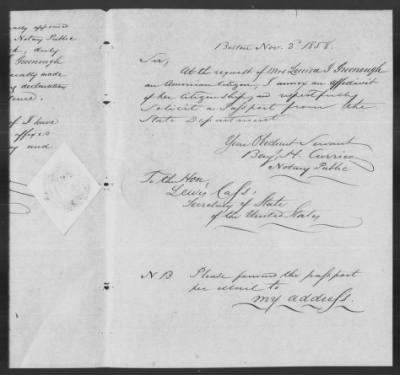 ally appeared
Notary Public
duly
Greenough
ally made
declaration
tence.
of I have
affixed
y and
Boston Nov. 3d 1858.
Sir,
At the request of Mrs Louisa I Greenough
an American Citizen, I annex an affidavit
of her Citizenship, and respectfully
Solicit a Passport from the
State Department
Your Obedient Servant
Benj. H. Currier
Notary Public
To the Hon
Lewis Cass.
Secretary of State
of the United States
N B Please forward the passport
per Mail to
my address.